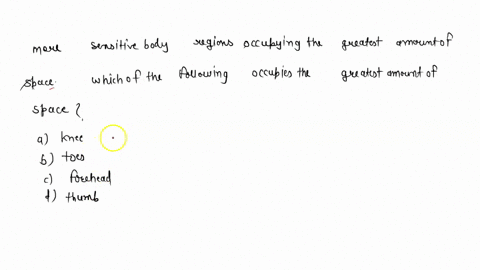 more sensitive body regions occupying the greatest amount of
space. which of the following occupies the greatest amount of
space?
a) knee
b) toes
c) forehead
d) thumb